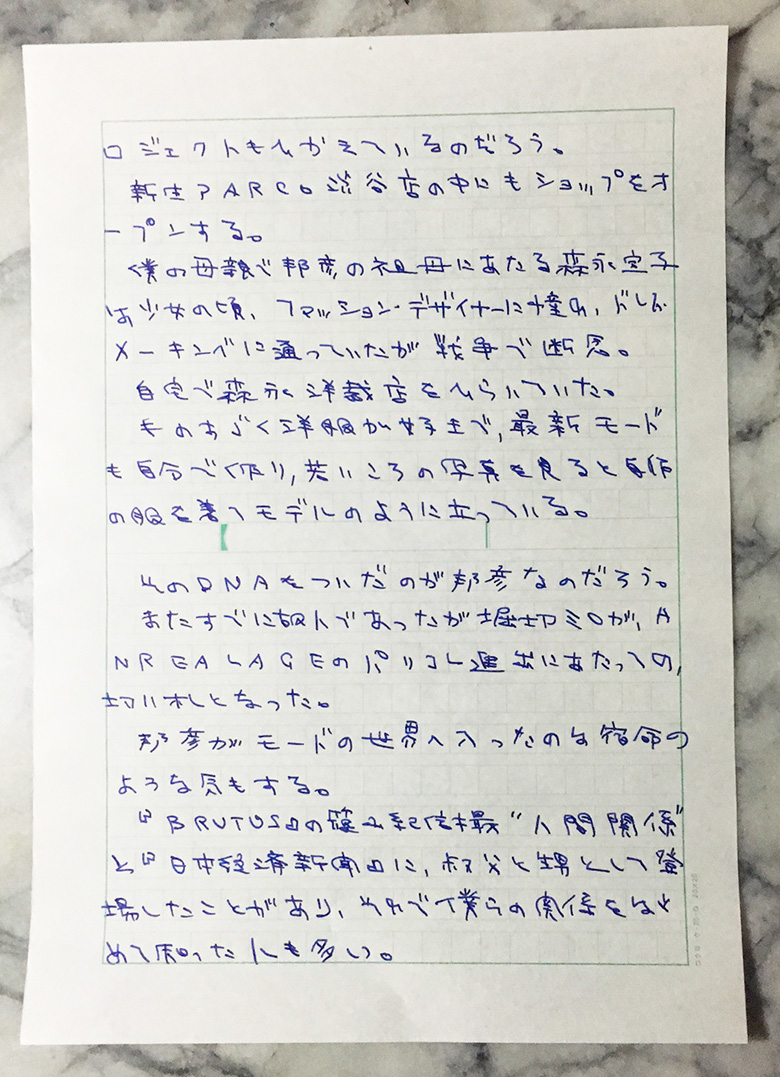 ロジェクトもひかえているのだろう。
新生PARCO渋谷店の中にもショップをオ
ープンする。
僕の母親で邦彦の祖母にあたる森永定子
は少女の頃、ファッション・デザイナーに憧れ、ドレス
メーキングに通っていたが戦争で断念。
自宅で森永洋裁店をひらいていた。
そのすごく洋服が好きで、最新モード
も自分で作り、若いころの写真を見ると自作
の服を着てモデルのように立っている。
そのDNAをついだのが邦彦なのだろう。
またすでに故人であったが堀切ミロが、A
NREALAGEのパリコレ進出にあたっての、
切り札となった。
邦彦がモードの世界へ入ったのは宿命の
ような気もする。
『BRUTUS』の篠山紀信撮“人間関係”
と『日本経済新聞』に、叔父と甥として登
場したことがあり、それで僕らの関係をはじ
めて知った人も多い。